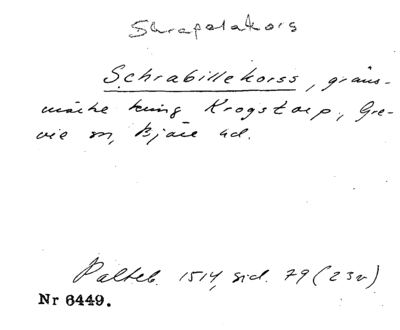 Skrapalakors
Schrabillekorss, gräns-
märke kring Krogstorp, Gre-
vie sn, Bjäre hd.
Palteb. 1514, sid. 79 (23v)
Nr 6449.